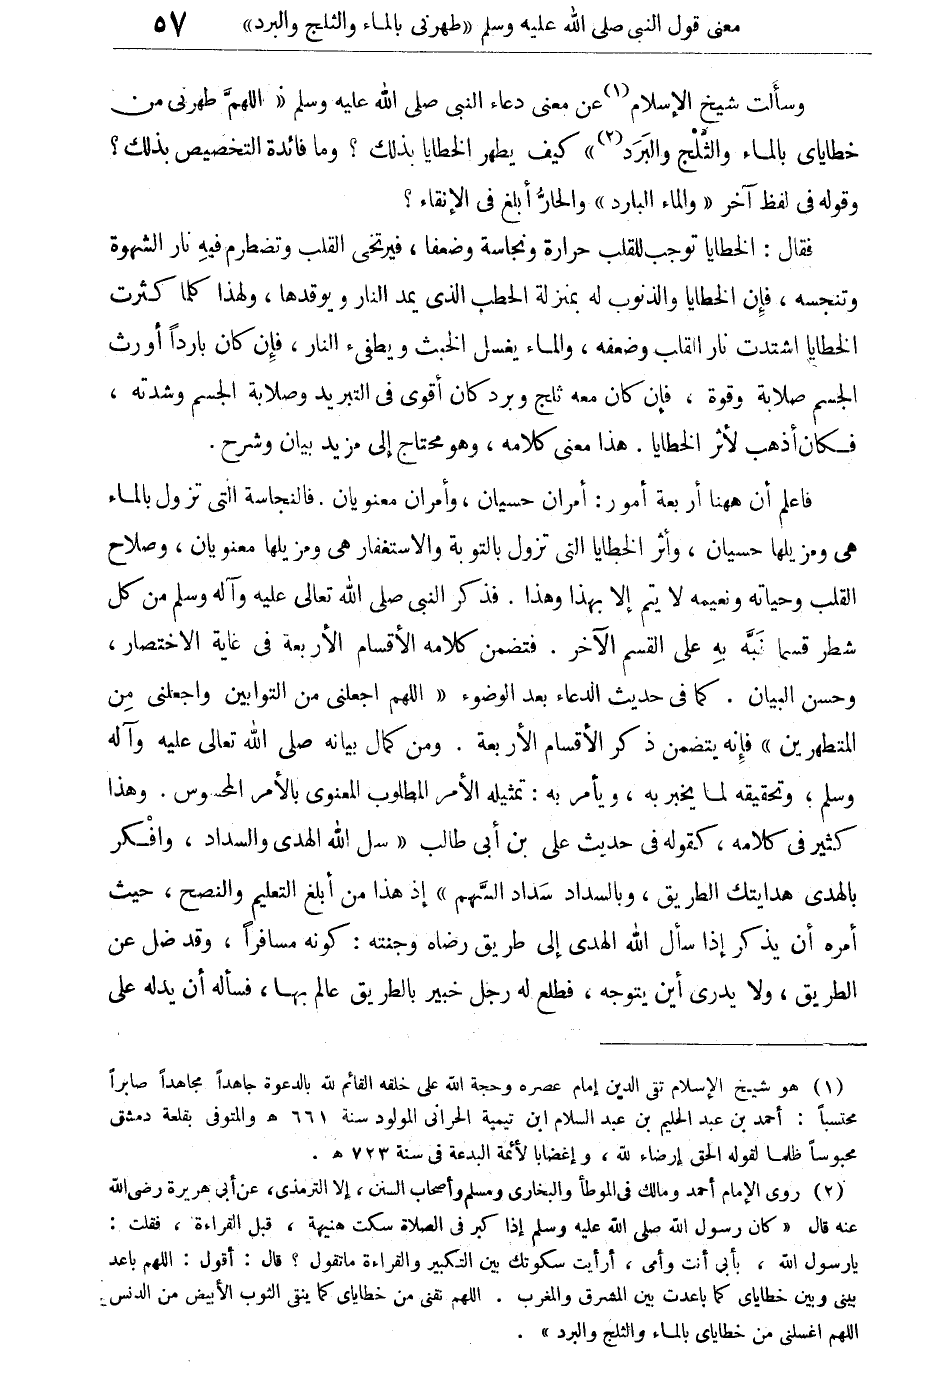 معنى قول النبى صلى الله عليه وسلم «طهرنى بالماء والثلج والبرد» ٥٧
وسألت شيخ الإسلام(١) عن معنى دعاء النبى صلى الله عليه وسلم « اللهمَّ طهرنى من
خطاياى بالماء والثَّلْج والبَرَد(٢) » كيف يطهر الخطايا بذلك ؟ وما فائدة التخصيص بذلك ؟
وقوله فى لفظ آخر « والماء البارد » والحارُّ أبلغ فى الإنقاء ؟
فقال : الخطايا توجب للقلب حرارة ونجاسة وضعفا ، فيرتخى القلب وتضطرم فيه نار الشهوة
وتنجسه ، فإن الخطايا والذنوب له بمنزلة الحطب الذى يمد النار ويوقدها ، ولهذا كلما كثرت
الخطايا اشتدت نار القلب وضعفه ، والماء يغسل الخبث ويطفىء النار ، فإن كان بارداً أورث
الجسم صلابة وقوة ، فإن كان معه ثلج وبرد كان أقوى فى التبريد وصلابة الجسم وشدته ،
فكان أذهب لأثر الخطايا . هذا معنى كلامه ، وهو محتاج إلى مزيد بيان وشرح .
فاعلم أن ههنا أربعة أمور : أمران حسيان ، وأمران معنويان . فالنجاسة التى تزول بالماء
هى ومزيلها حسيان ، وأثر الخطايا التى تزول بالتوبة والاستغفار هى ومزيلها معنويان ، وصلاح
القلب وحياته ونعيمه لا يتم إلا بهذا وهذا . فذكر النبى صلى الله تعالى عليه وآله وسلم من كل
شطر قسما نَبَّه به على القسم الآخر . فتضمن كلامه الأقسام الأربعة فى غاية الاختصار ،
وحسن البيان . كما فى حديث الدعاء بعد الوضوء « اللهم اجعلنى من التوابين واجعلنى مِن
المتطهرين » فإنه يتضمن ذكر الأقسام الأربعة . ومن كمال بيانه صلى الله تعالى عليه وآله
وسلم ، وتحقيقه لما يخبر به ، ويأمر به : تمثيله الأمر المطلوب المعنوى بالأمر المحسوس . وهذا
كثير فى كلامه ، كقوله فى حديث على بن أبى طالب « سل الله الهدى والسداد ، وافْكر
بالهدى هدايتك الطريق ، وبالسداد سَداد السَّهم » إذ هذا من أبلغ التعليم والنصح ، حيث
أمره أن يذكر إذا سأل الله الهدى إلى طريق رضاه وجنته : كونه مسافراً ، وقد ضل عن
الطريق ، ولا يدرى أين يتوجه ، فطلع له رجل خبير بالطريق عالم بها ، فسأله أن يدله على
(١) هو شيخ الإسلام تقى الدين إمام عصره وحجة الله على خلقه القائم لله بالدعوة جاهداً مجاهداً صابراً
محتسباً : أحمد بن عبد الحليم بن عبد السلام ابن تيمية الحرانى المولود سنة ٦٦١ هـ والمتوفى بقلعة دمشق
محبوساً ظلما لقوله الحق إرضاء لله ، وإغضابا لأئمة البدعة فى سنة ٧٢٣ هـ .
(٢) روى الإمام أحمد ومالك فى الموطأ والبخارى ومسلم وأصحاب السنن ، إلا الترمذى ، عن أبى هريرة رضى الله
عنه قال « كان رسول الله صلى الله عليه وسلم إذا كبر فى الصلاة سكت هنيهة ، قبل القراءة ، فقلت :
يارسول الله ، بأبى أنت وأمى ، أرأيت سكوتك بين التكبير والقراءة ماتقول ؟ قال : أقول : اللهم باعد
بينى وبين خطاياى كما باعدت بين المشرق والمغرب . اللهم نقنى من خطاياى كما ينقى الثوب الأبيض من الدنس .
اللهم اغسلنى من خطاياى بالماء والثلج والبرد » .